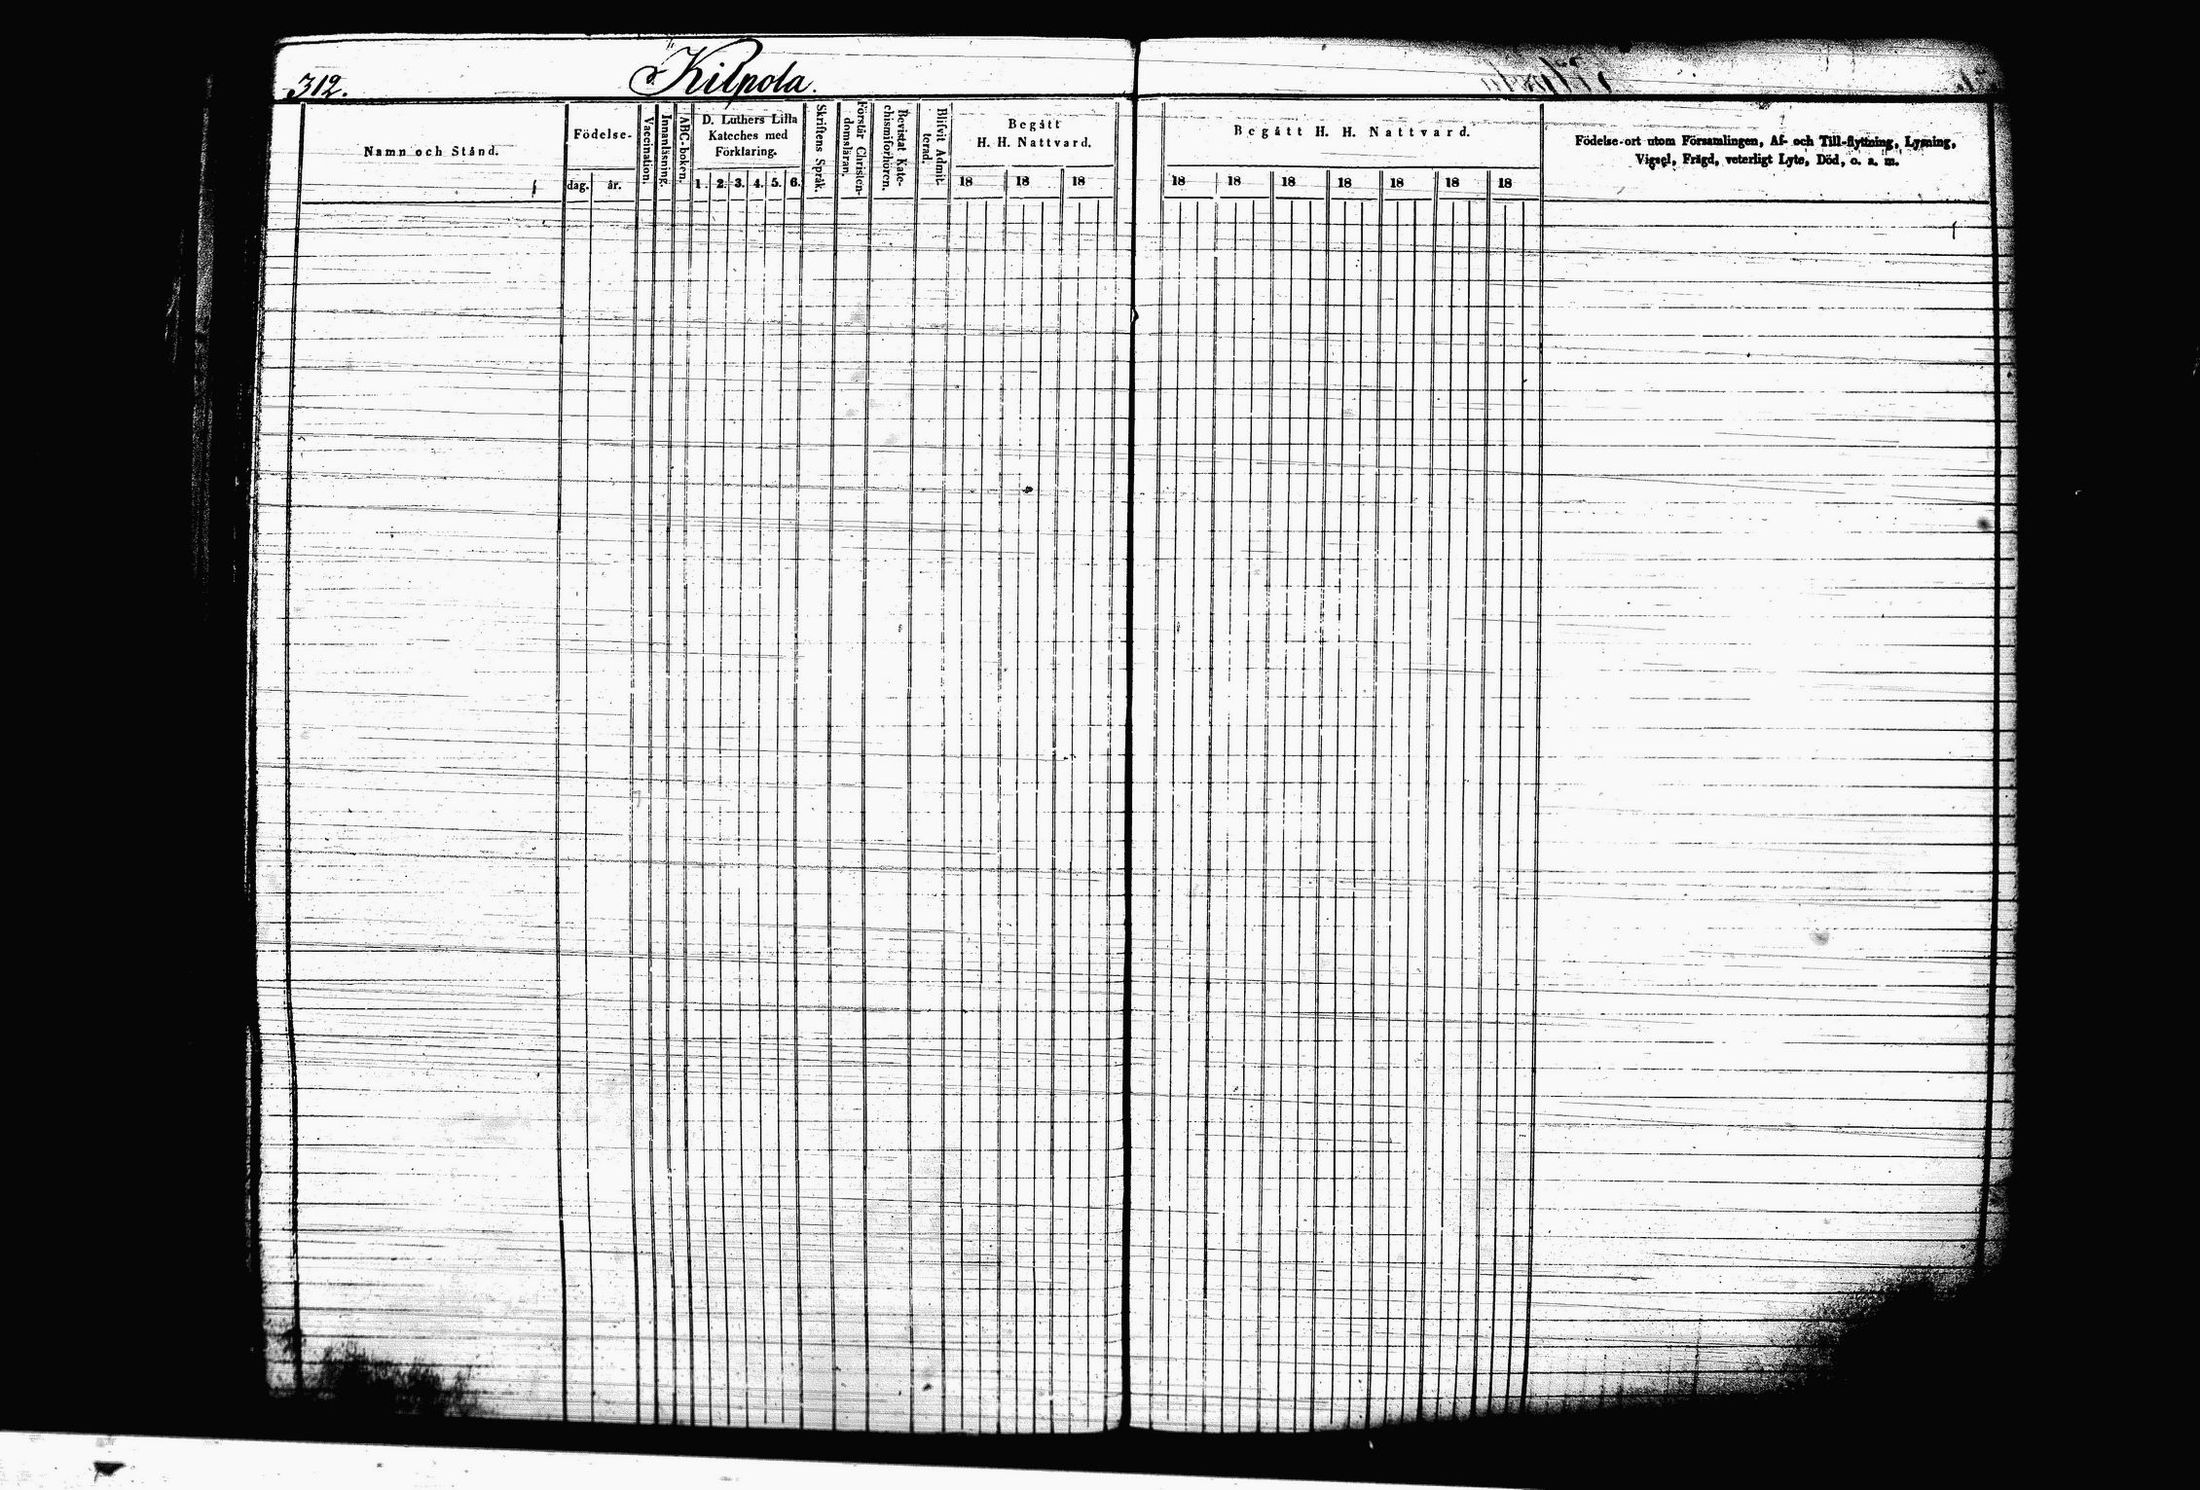 312. Kilpola.
Namn och Stånd.
Födelse-
dag. år.
Vaccination.
Innanläsning.
ABC-boken.
D. Luthers Lilla
Kateches med
Förklaring.
1. 2. 3. 4. 5. 6.
Skriftens Språk.
Förstår Christen-
domsläran.
Bevistat Kate-
chismiförhören.
Blifvit Admit-
terad.
Begått
H. H. Nattvard.
18 18 18
Begått H. H. Nattvard.
18 18 18 18 18 18 18
Födelse-ort utom Församlingen, Af- och Till-flyttning, Lysning,
Vigsel, Frägd, veterligt Lyte, Död, o. s. m.